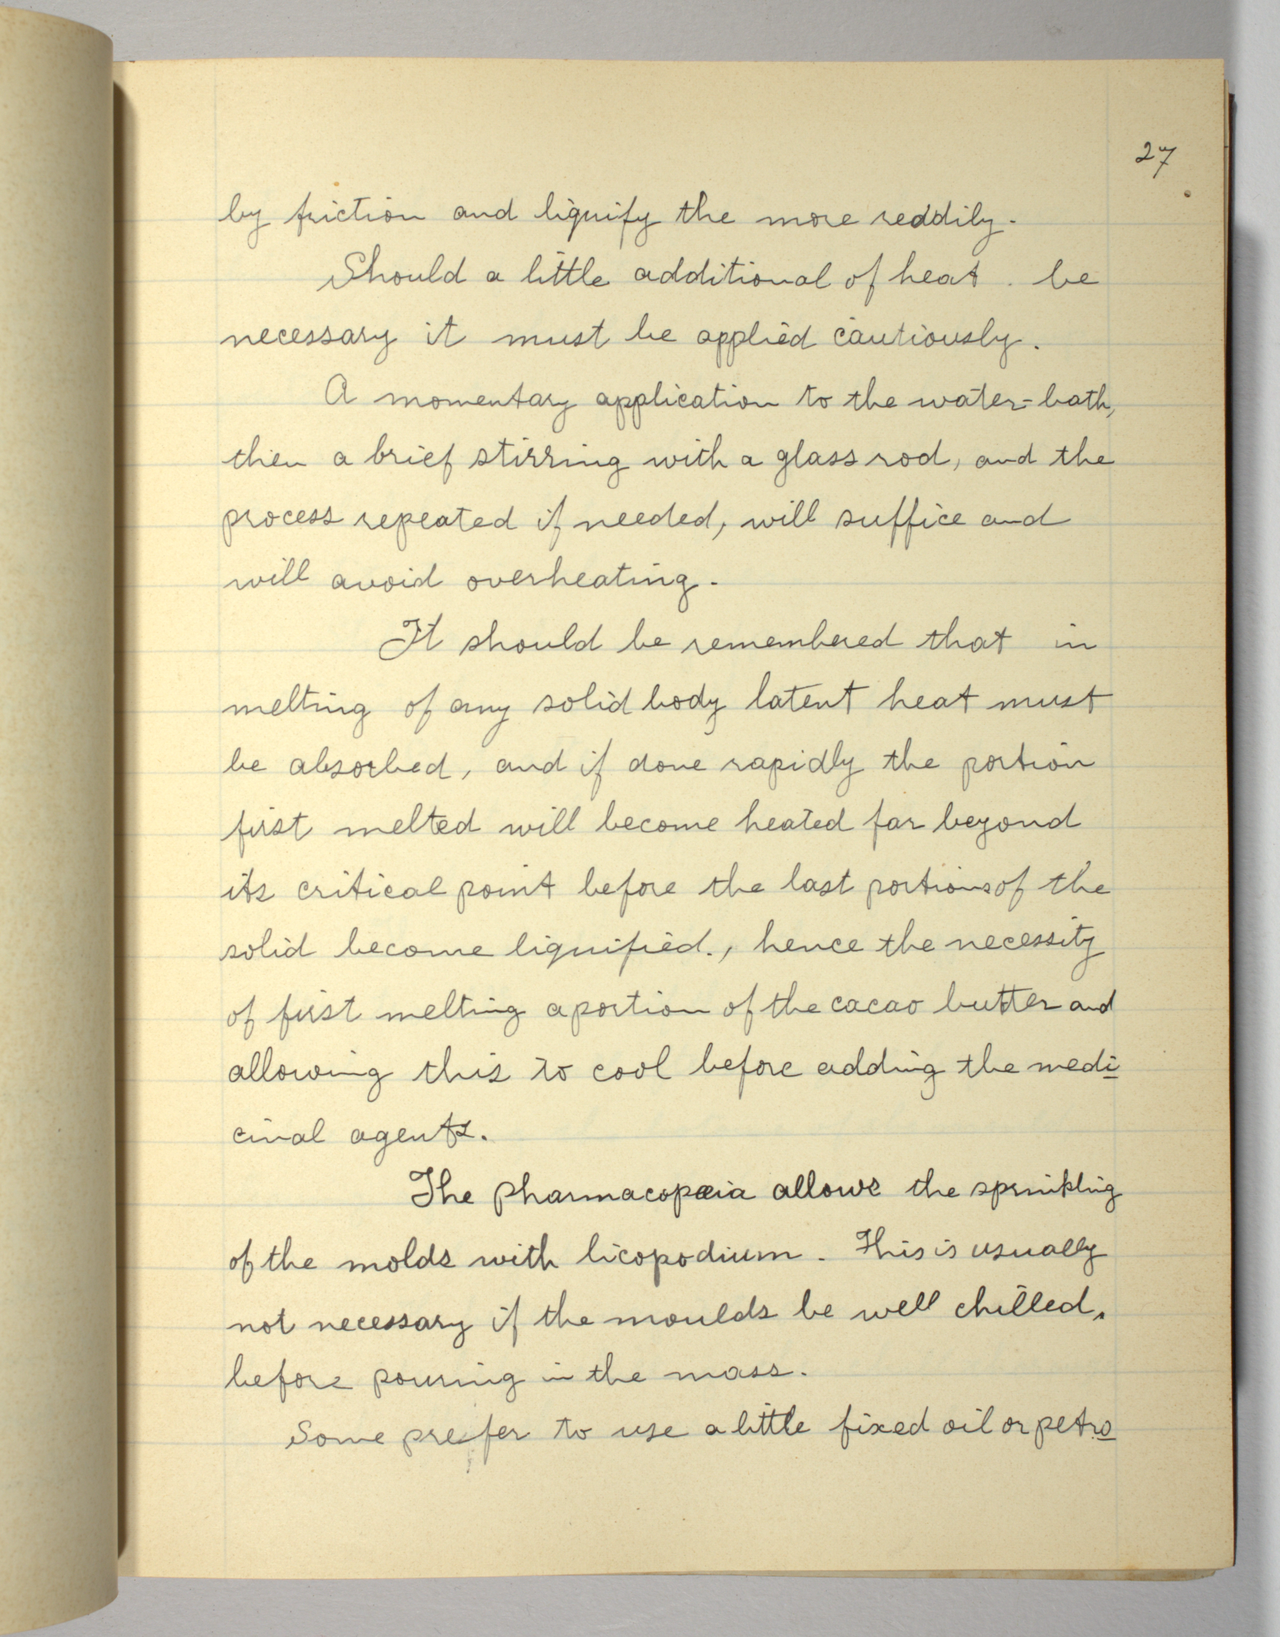 27
by friction and liquify the more reddily.
Should a little additional of heat . be
necessary it must be applied cautiously.
A momentary application to the water-bath,
then a brief stirring with a glass rod, and the
process repeated if needed, will suffice and
will avoid overheating.
It should be remembered that in
melting of any solid body latent heat must
be absorbed, and if done rapidly the portion
first melted will become heated far beyond
its critical point before the last portions of the
solid become liquified., hence the necessity
of first melting a portion of the cacao butter and
allowing this to cool before adding the medi
cinal agents.
The pharmacopœia allows the sprinkling
of the molds with licopodium. This is usually
not necessary if the moulds be well chilled,
before pouring in the mass.
Some prefer to use a little fixed oil or petro